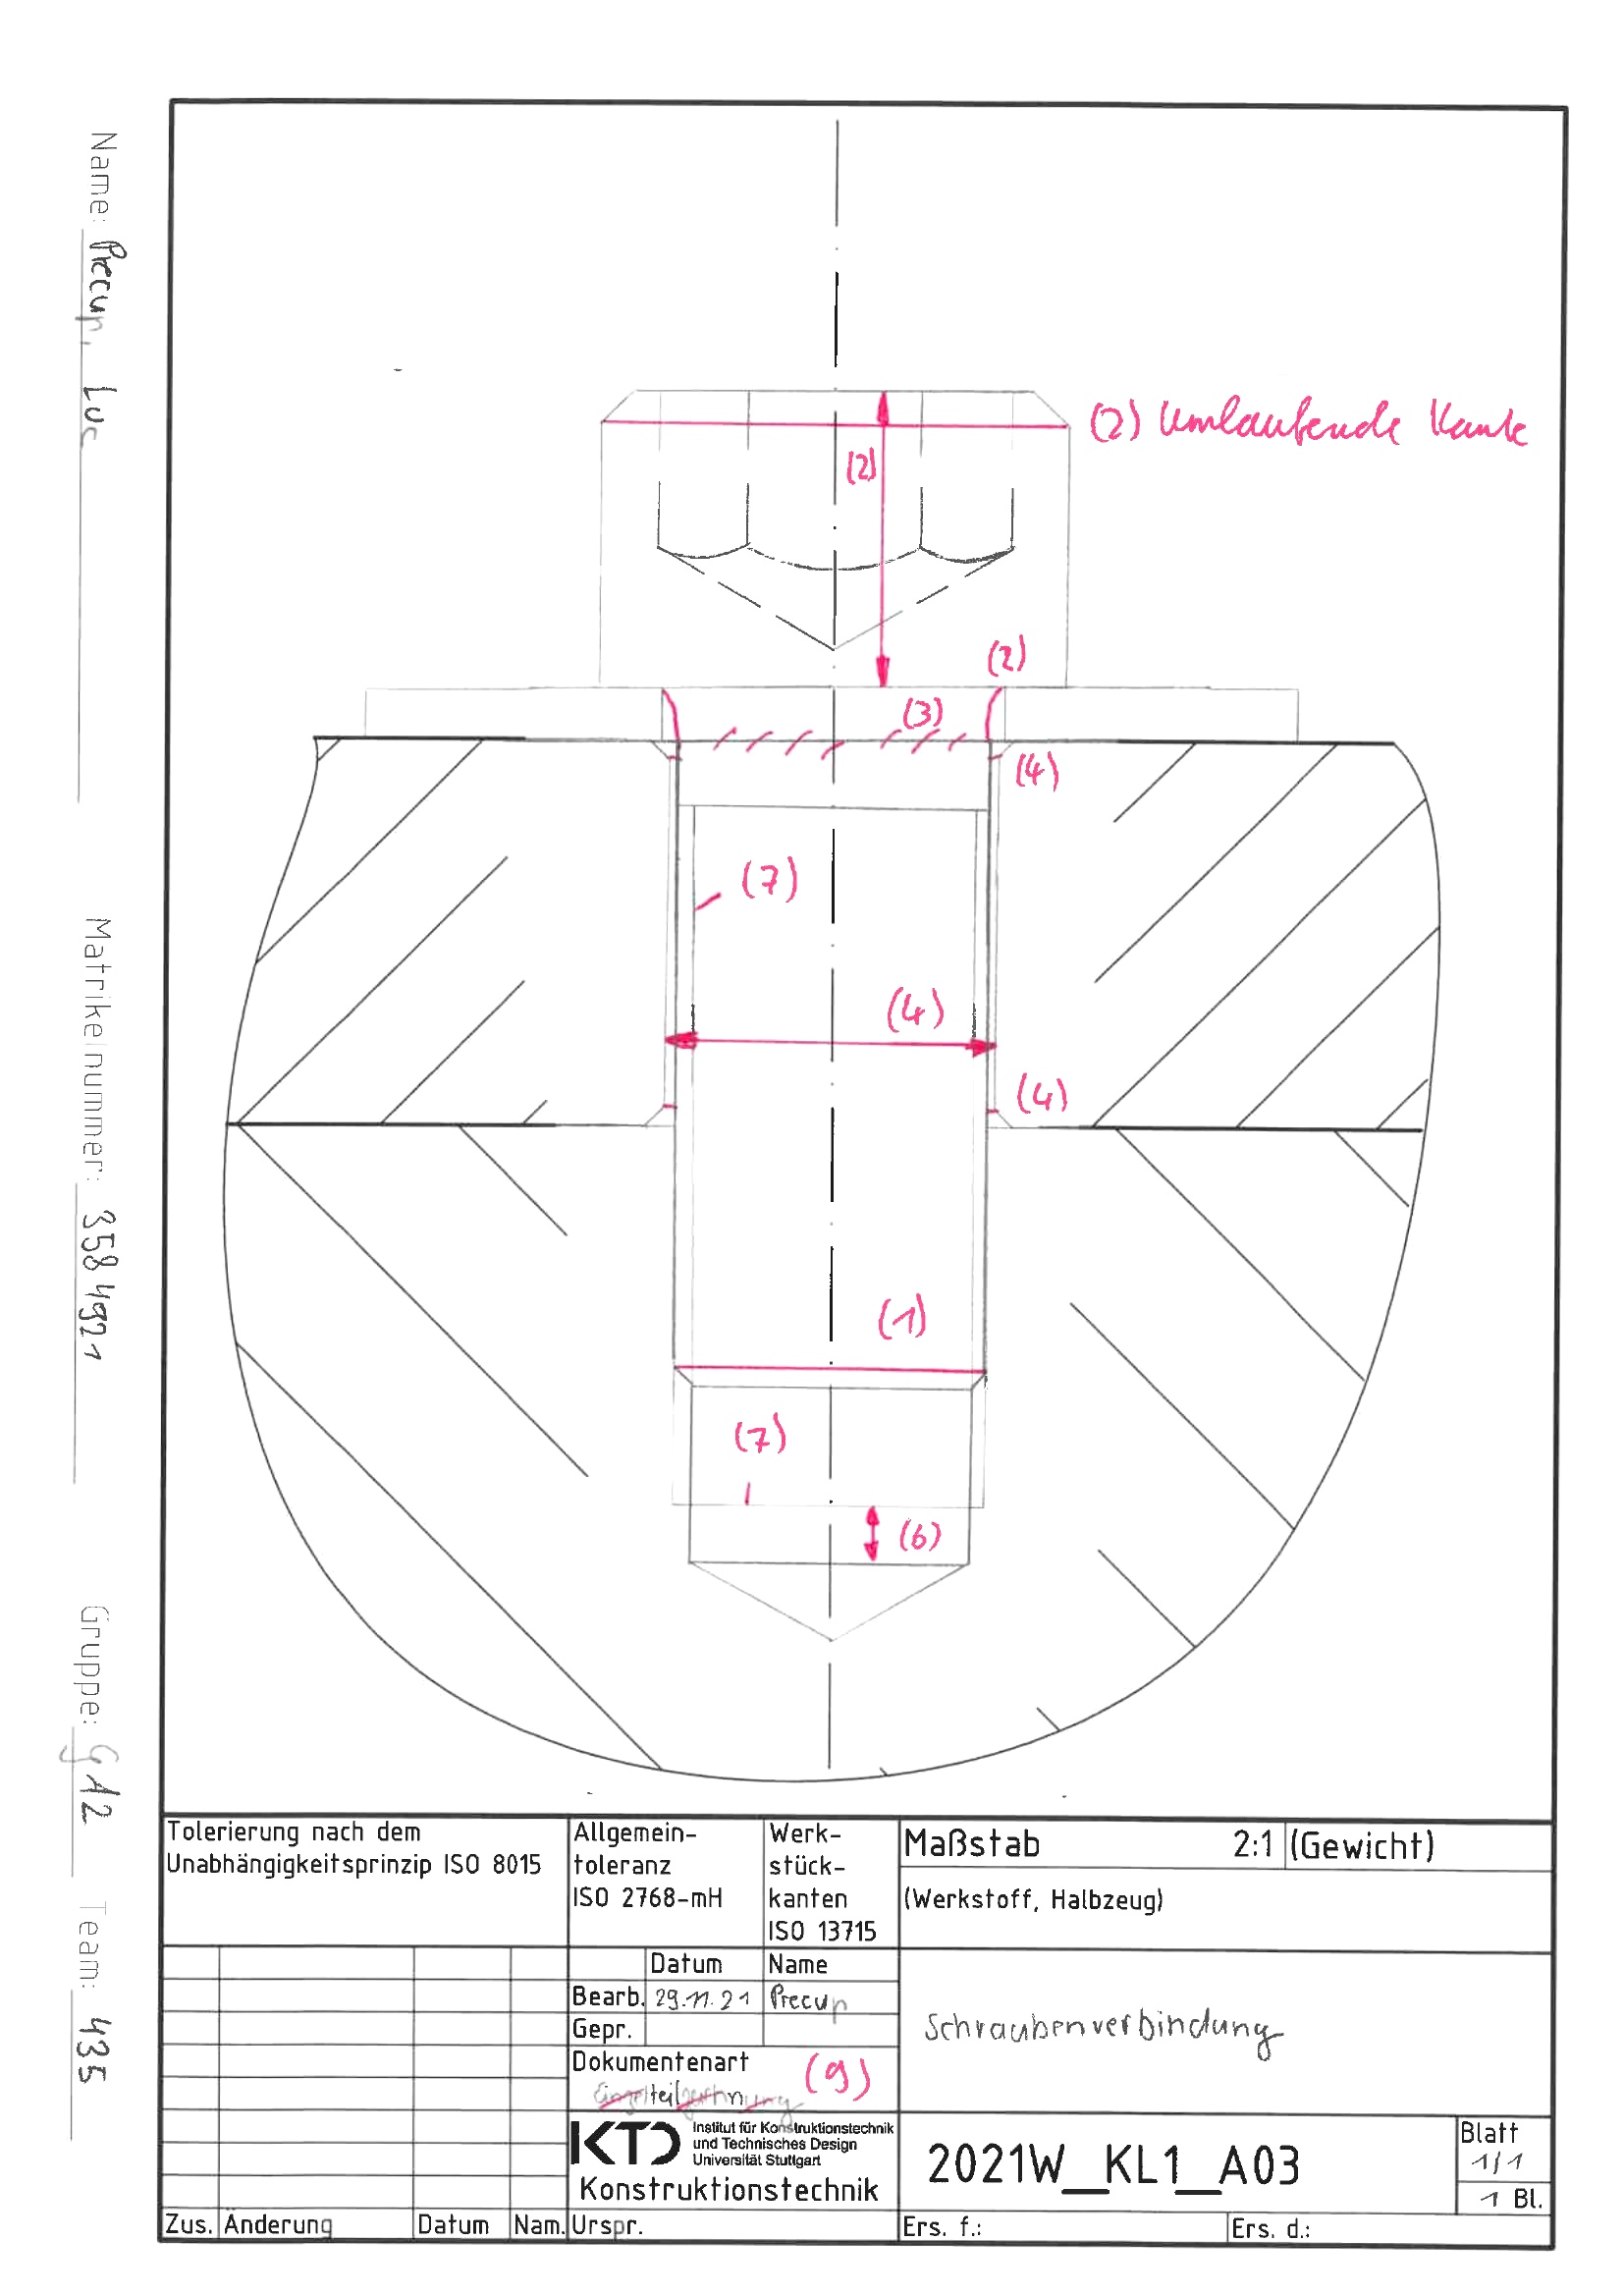 Name: Precup, Luc
Matrikelnummer: 3584921
Gruppe: G12
Team: 435
(2) Umlaufende Kante
(2)
(2)
(3)
(4)
(7)
(4)
(4)
(1)
(7)
(6)
Tolerierung nach dem
Unabhängigkeitsprinzip ISO 8015
Allgemein-
toleranz
ISO 2768-mH
Werk-
stück-
kanten
ISO 13715
Maßstab 2:1 (Gewicht)
(Werkstoff, Halbzeug)
Datum Name
Bearb. 29.11.21 Precup
Gepr.
Dokumentenart (9)
Einzelteilzeichnung
Schraubenverbindung
KTD Institut für Konstruktionstechnik
und Technisches Design
Universität Stuttgart
Konstruktionstechnik
2021W_KL1_A03
Blatt
1/1
1 Bl.
Zus. Änderung Datum Nam. Urspr. Ers. f.: Ers. d.: